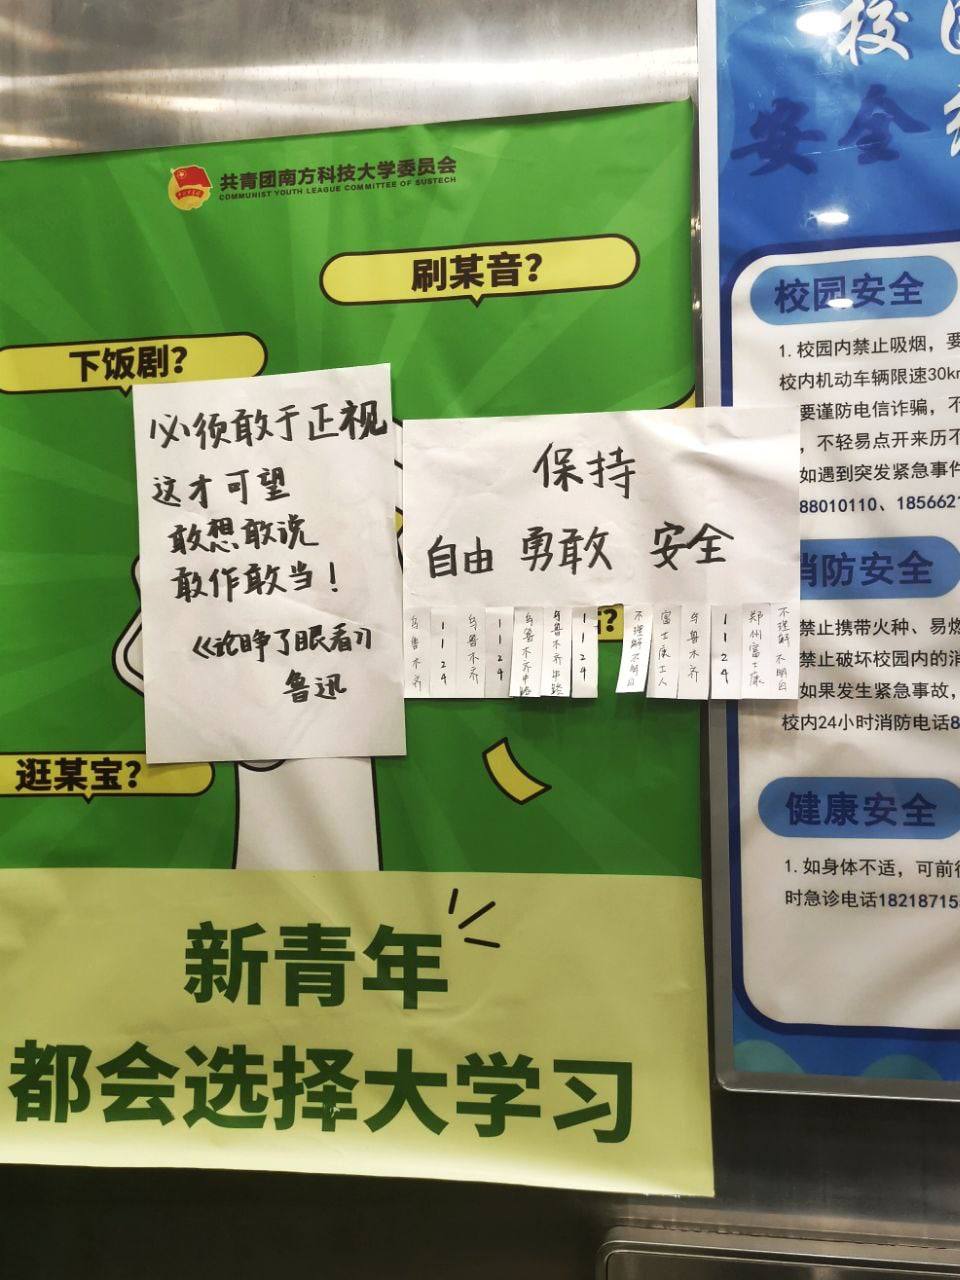 共青团南方科技大学委员会
COMMUNIST YOUTH LEAGUE COMMITTEE OF SUSTECH
刷某音？
下饭剧？
必须敢于正视
这才可望
敢想敢说
敢作敢当！
《论睁了眼看》
鲁迅
保持
自由 勇敢 安全
乌鲁木齐
1124
乌鲁木齐
1124
乌鲁木齐中路
乌鲁木齐中路
1124
不理解不明白
富士康工人
乌鲁木齐
1124
郑州富士康
不理解 不明白
？
逛某宝？
新青年
都会选择大学习
校
安全
校园安全
1. 校园内禁止吸烟，要
校内机动车辆限速30km
要谨防电信诈骗，不
，不轻易点开来历不
如遇到突发紧急事件
88010110、185662
消防安全
禁止携带火种、易燃
禁止破坏校园内的消
如果发生紧急事故，
校内24小时消防电话8
健康安全
1. 如身体不适，可前往
时急诊电话18218715